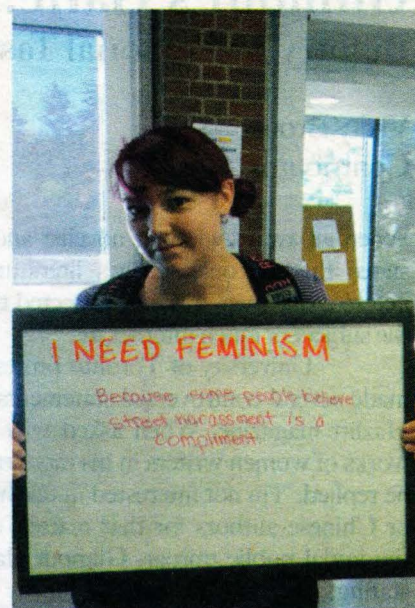 I NEED FEMINISM
Because some people believe
street harassment is a
compliment.